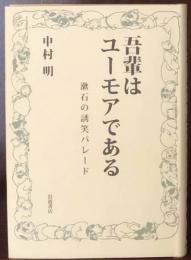 吾輩は
ユーモアである
漱石の誘笑パレード
中村 明
岩波書店